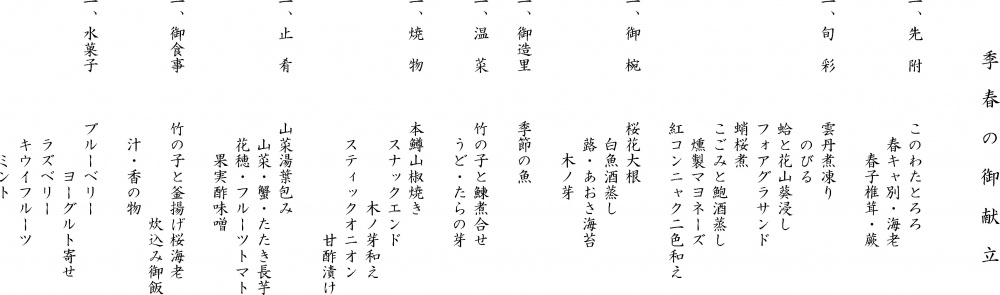 季春の御献立
一、先附
このわたとろろ
春キャベツ・海老
春子椎茸・蕨
一、旬彩
雲丹煮凍り
のびる
蛤と花山葵浸し
フォアグラサンド
蛸桜煮
こごみと鮑酒蒸し
燻製マヨネーズ
紅コンニャク二色和え
一、御椀
桜花大根
白魚酒蒸し
蕗・あおさ海苔
木ノ芽
一、御造里
季節の魚
一、温菜
竹の子と鰊煮合せ
うど・たらの芽
一、焼物
本鱒山椒焼き
スナックエンド
木ノ芽和え
スティックオニオン
甘酢漬け
一、止肴
山菜湯葉包み
山菜・蟹・たたき長芋
花穂・フルーツトマト
果実酢味噌
一、御食事
竹の子と釜揚げ桜海老
炊込み御飯
汁・香の物
一、水菓子
ブルーベリー
ヨーグルト寄せ
ラズベリー
キウイフルーツ
ミント